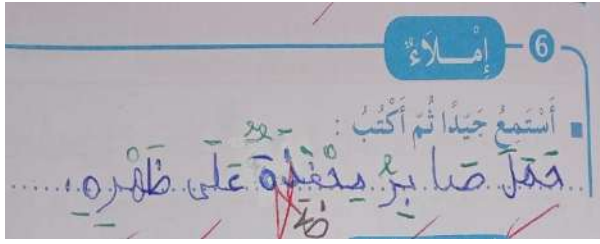 6 إِمْلَاءٌ
أَسْتَمِعُ جَيِّدًا ثُمَّ أَكْتُبُ :
حَمَلَ صَابِرٌ مِحْفَظَةً عَلَى ظَهْرِهِ.